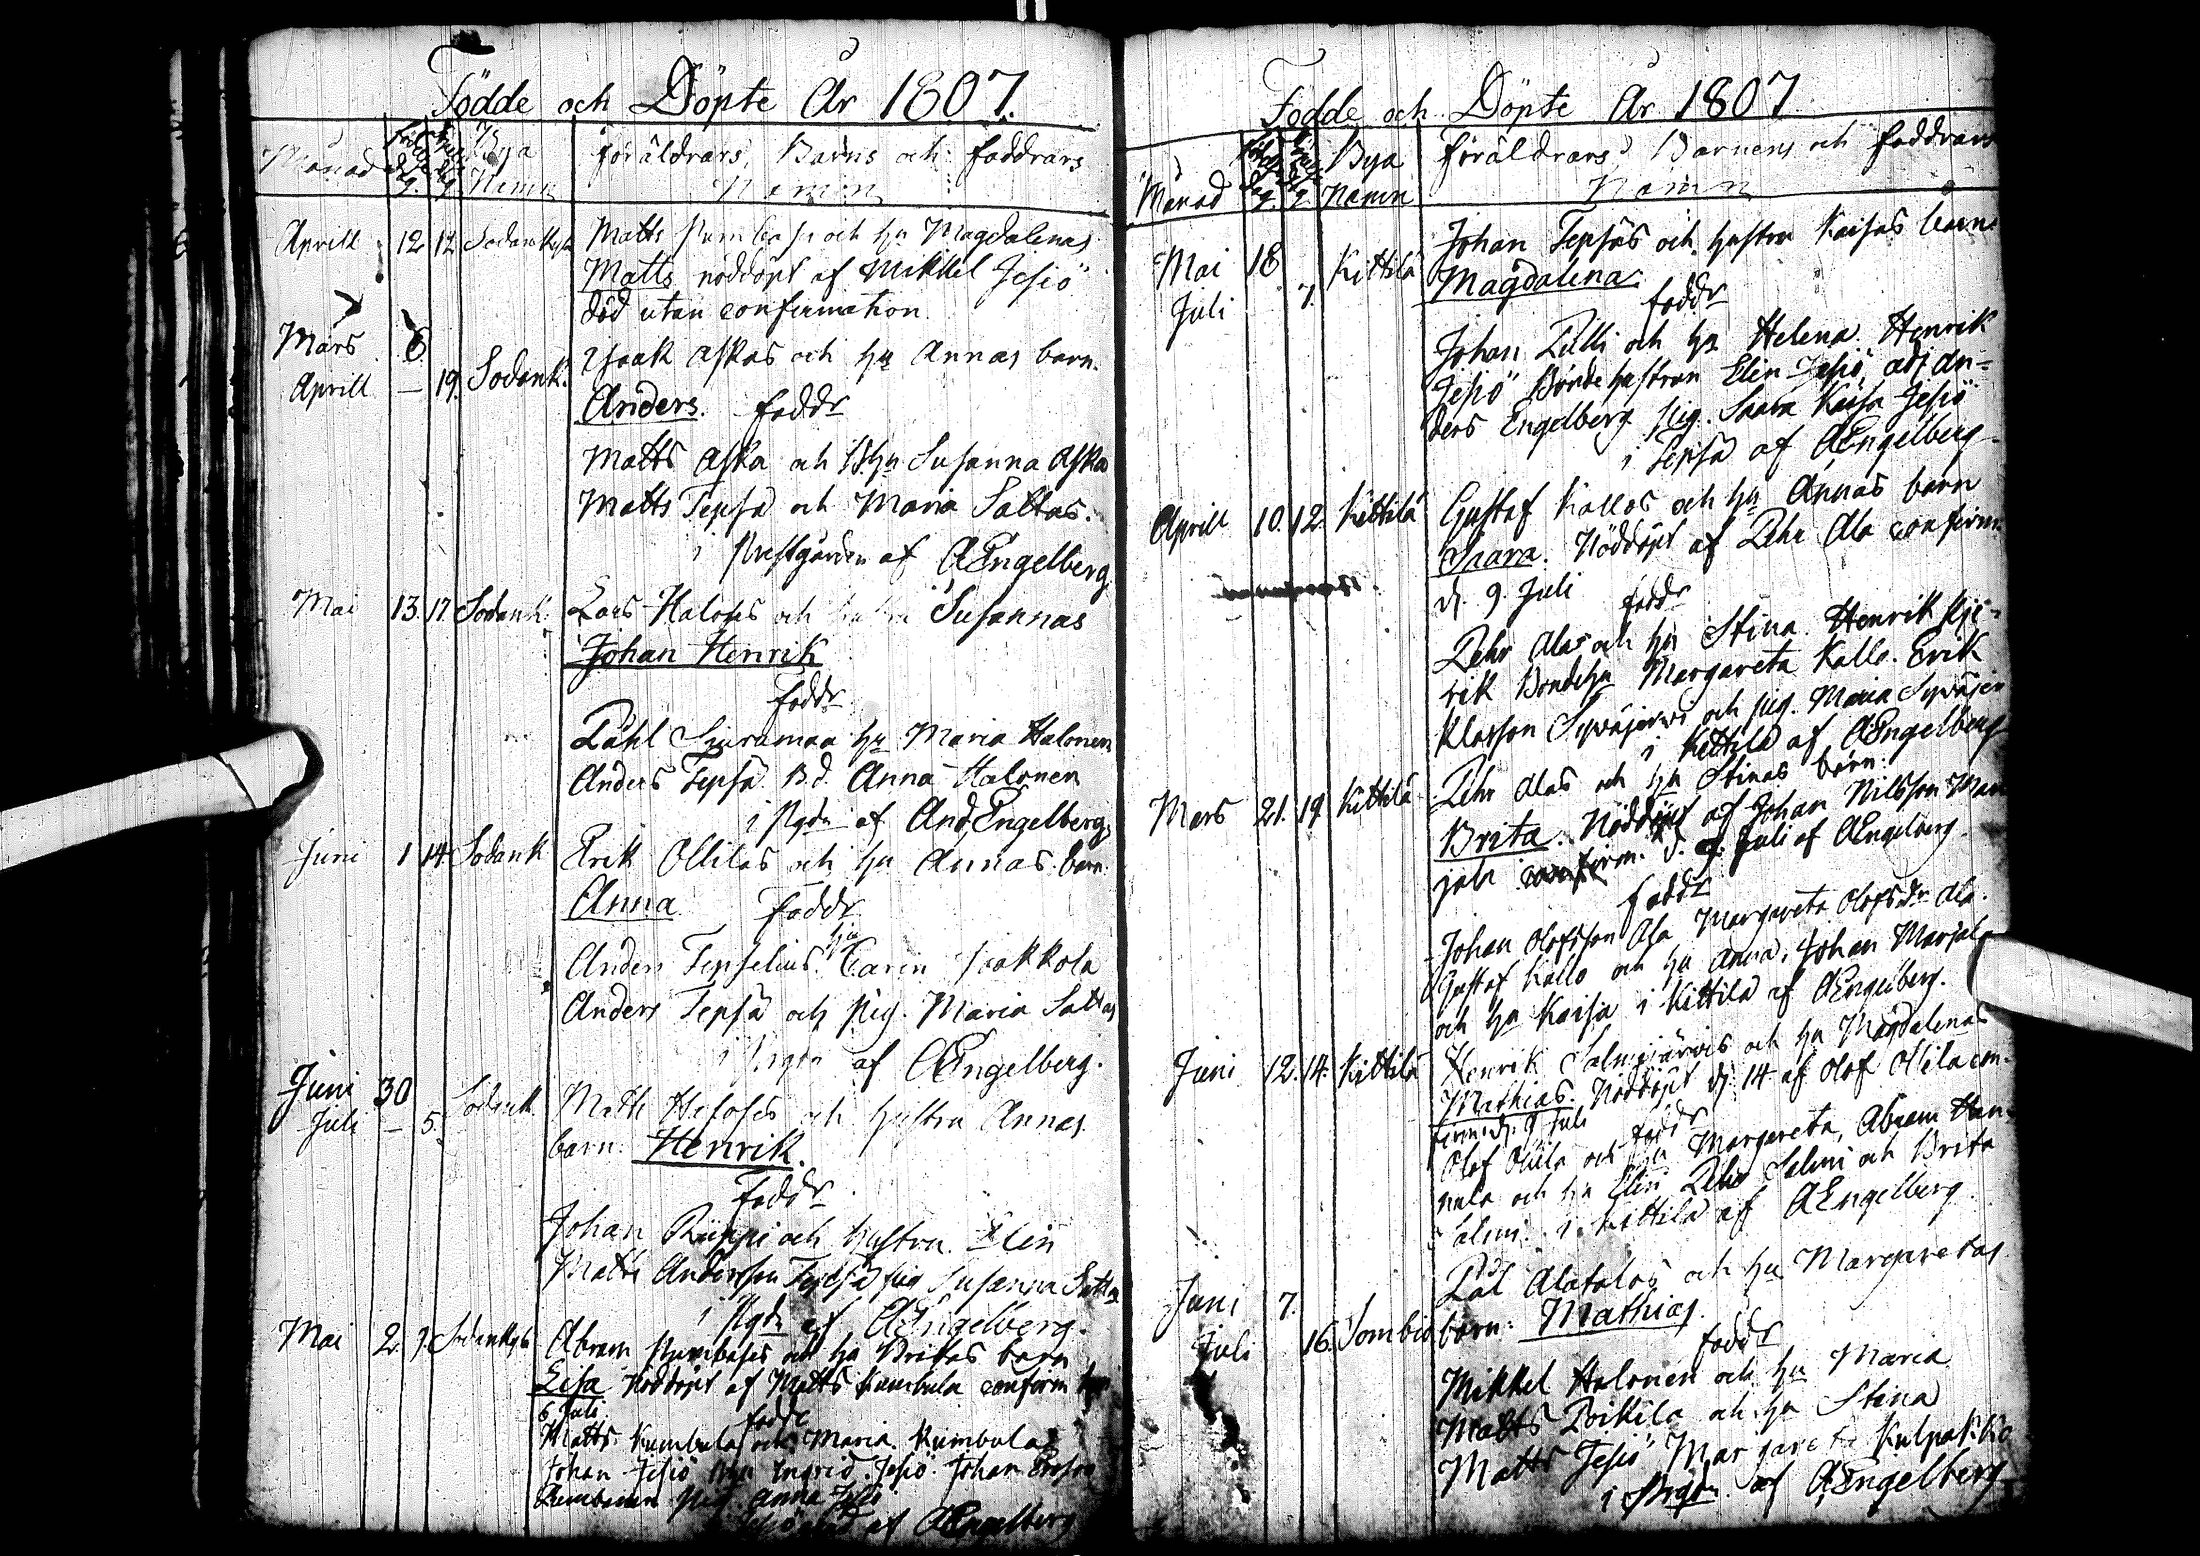 Födde och Döpte År 1807.
Månad Född dag Döpt dag Bya Namn Föräldrars, Barns och faddrars Namn
Aprill 12 12 Sodankylä Matts och hu Magdalenas
Matts nöddöpt af Mikkel Jesiö
död utan confirmation
Mars 8
Aprill — 19. Sodank. Isaak Askas och hu Annas barn.
Anders. faddr
Matts Aska och hu Susanna Aska
Matts Tepsa och Maria Sattas.
i Prestgården af AEngelberg
Mai 13. 17. Sodank. Lars Haloses och Susannas
Johan Henrik
faddr
Påhl hu Maria Halonen
Anders Tepsa B.d. Anna Halonen
i Pgdn af And Engelberg
Juni 1 14 Sodank Erik Ollilas och hu Annas barn
Anna faddr
hu
Anders Tepselius Caren Jaakkola
Anders Tepsa och pig. Maria Sattas
i af AEngelberg.
Juni 30
Juli — 5. Sodank Matts Haloses och hustru Annas
barn. Henrik.
faddr
Johan Riippi och hustru Elin
Matts Andersson Tepsa pig Susanna Satta
i Pgdn af AEngelberg.
Mai 2. 3. Sodankylä Abram Kumbulas och hu Britas barn
Lisa Nöddöpt af Matts Kumbula confirm
6 Juli
faddr
Matts Kumbula och Maria Kumbula
Johan Jesiö Ingrid Jesiö Johan
pig. Anna Jesiö
af AEngelberg
Födde och Döpte År 1807
Månad Född dag Döpt dag Bya Namn Föräldrars, Barnens och faddrars Namn
Mai 18 Kittilä Johan Tepsas och hustru Kaisas barn
Juli 7. Magdalena.
faddr
Johan Pilli och hu Helena Henrik
Jesiö Bonde hustrun Elin Jesiö adj An-
ders Engelberg pig. Saara Kaisa Jesiö
i Tepsa af AEngelberg
Aprill 10. 12. Kittilä Gustaf Kallos och hu Annas barn
Saara. Nöddöpt af Pehr Ala confirm.
d. 9. Juli faddr
Pehr Alas och hu Stina Henrik Kje-
rik Bondehu Margareta Kallo. Erik
Klasson Syväjervi och pig. Maria Syväjer
i Kittilä af AEngelberg
Mars 21. 19 Kittilä Pehr Alas och hu Stinas barn.
Brita. Nöddöpt af Johan Nilsson Mar
jala confirm. d. 9. Juli af AEngelberg.
faddr
Johan Olofsson Ala Margareta Olofsdr Ala.
Gustaf Kallo och hu Anna, Johan Marjala
och hu Kaisa i Kittilä af AEngelberg.
Juni 12. 14. Kittilä Henrik Salmijärvis och hu Magdalenas
Mathias. Nöddöpt d. 14 af Olof Ollila con-
firm. d. 9 Juli faddr
Olof Ollila och hu Margareta, Abram Han-
nula och hu Elin Pehr Salmi och Brita
Salmi. i Kittilä af AEngelberg
Juni 7. Pål Alatalos och hu Margaretas
Juli 16. Sombio barn: Mathias.
faddr
Mikkel Halonen och hu Maria
Matts Poikela och hu Stina
Matts Jesiö Margareta Kulpakko
i Pgdn af AEngelberg